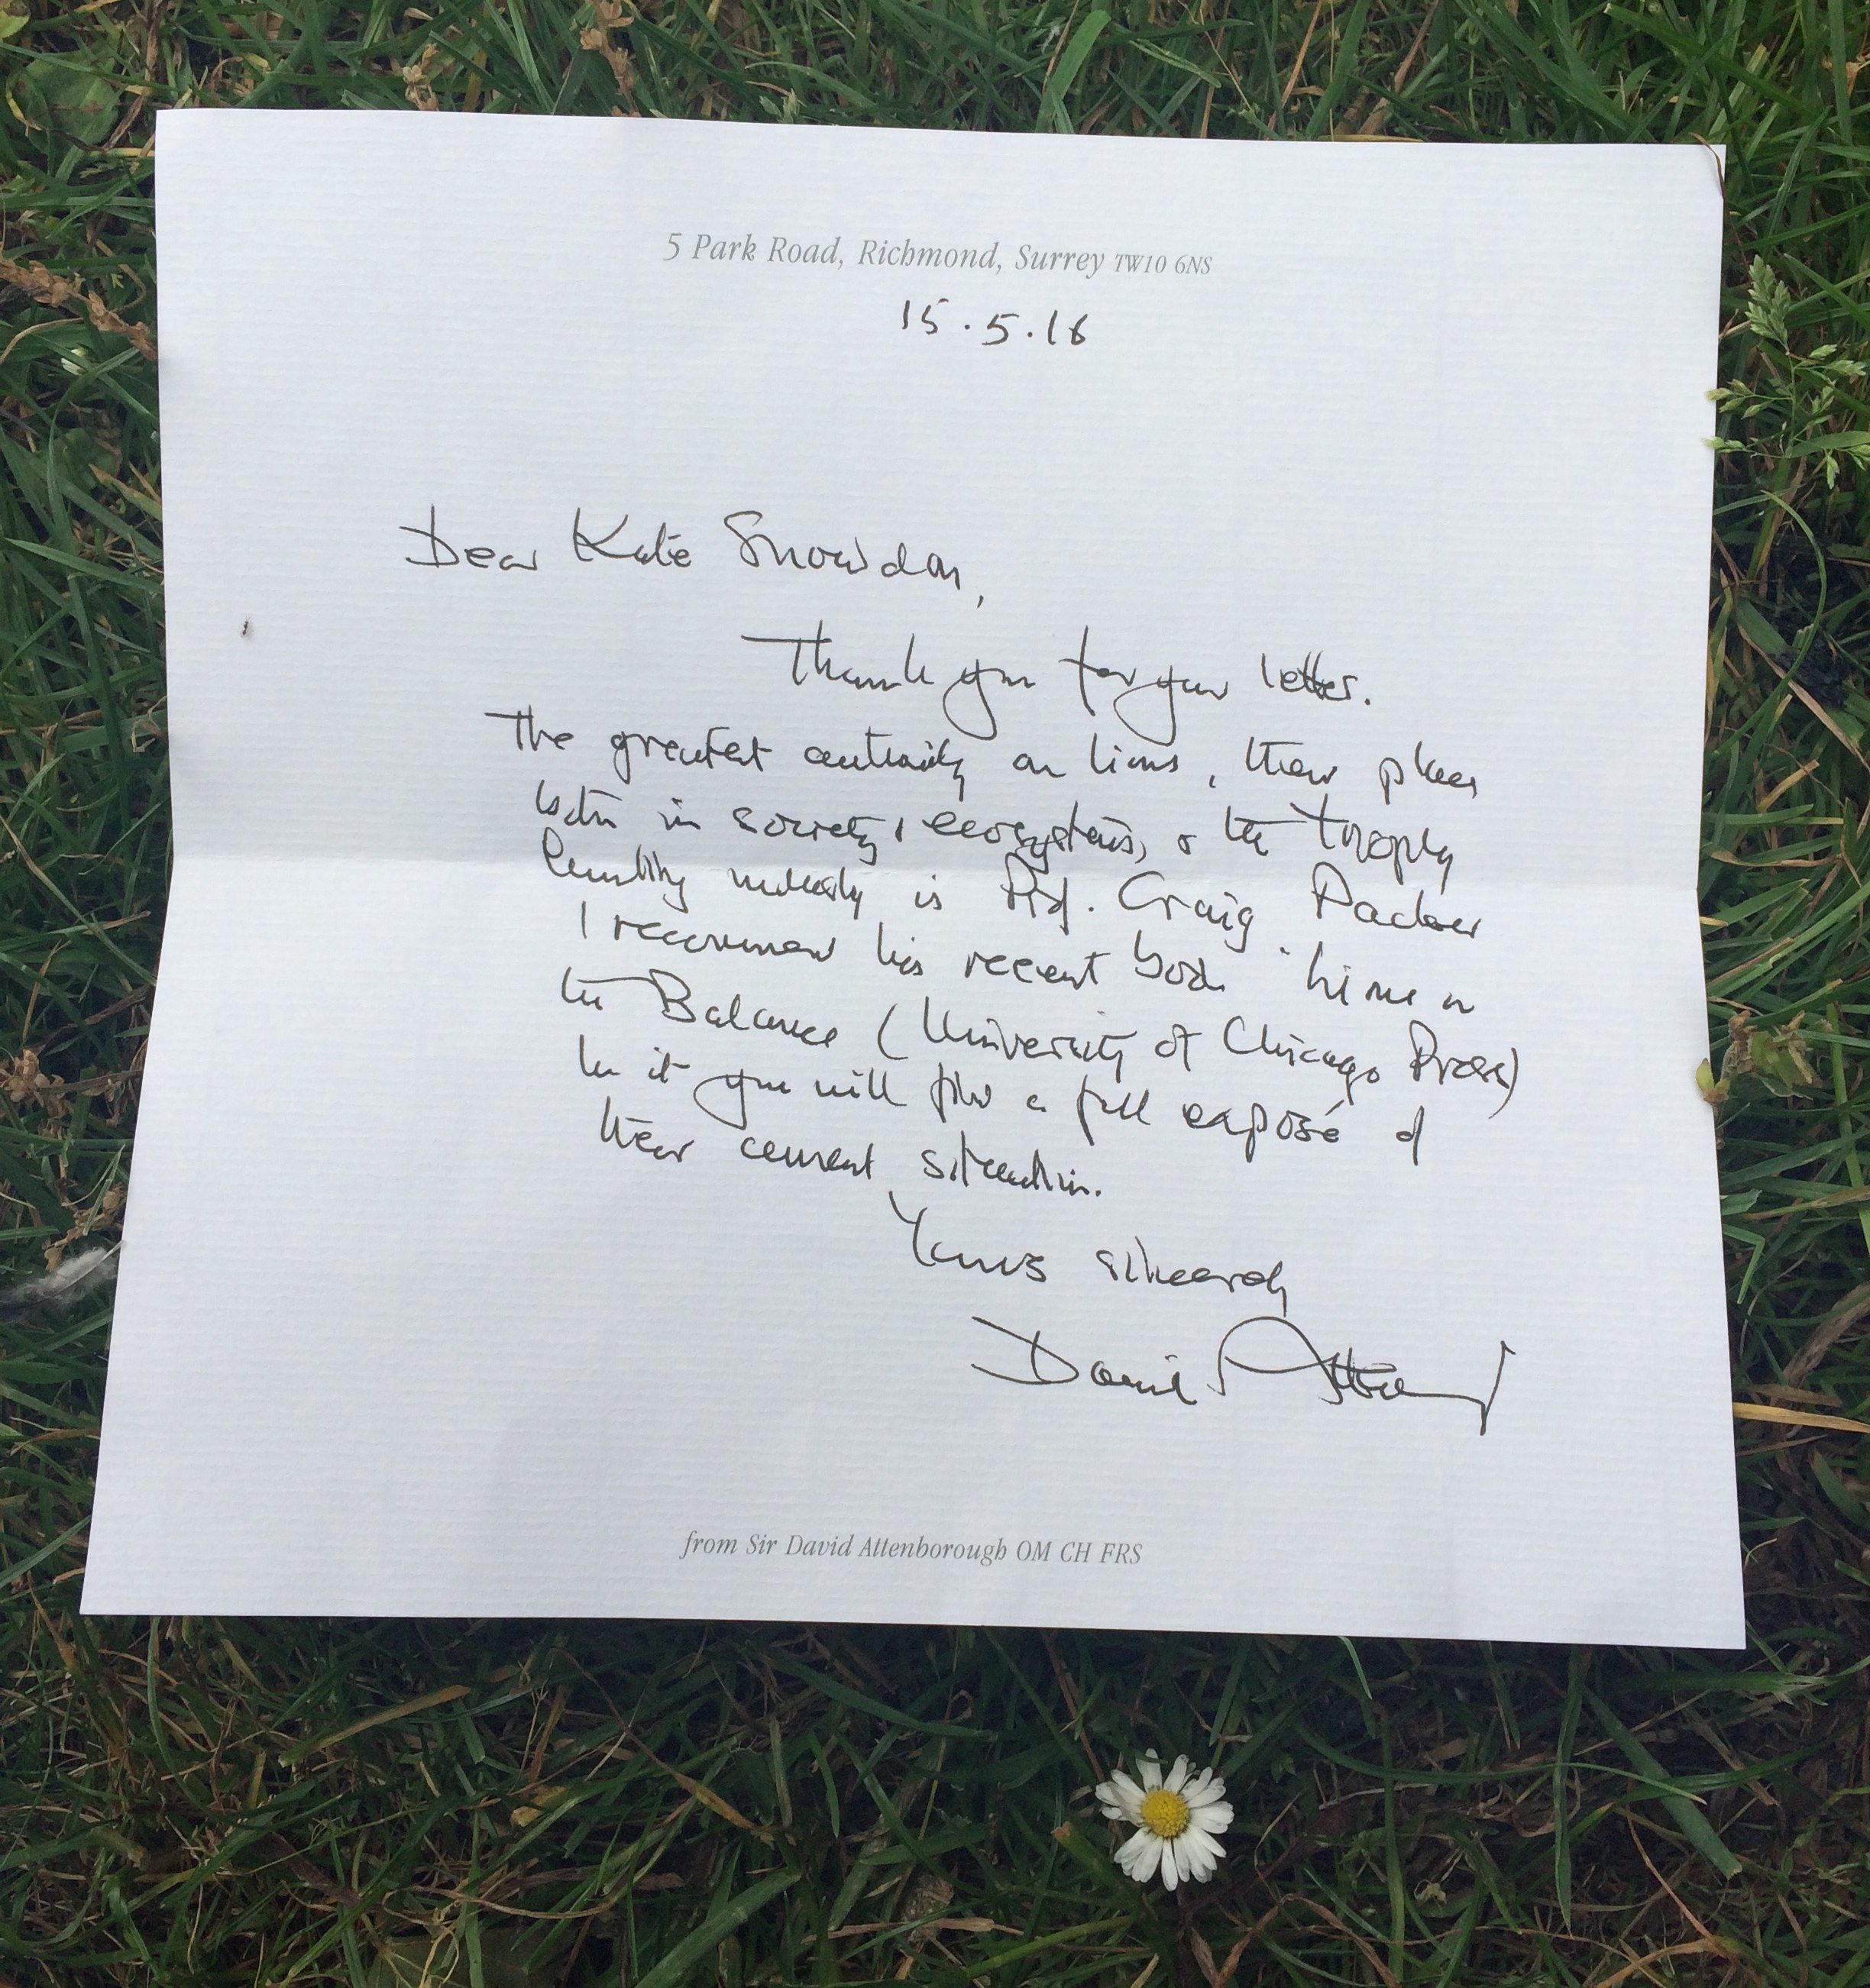 5 Park Road, Richmond, Surrey TW10 6NS
15.5.16
Dear Kate Snowdon,
Thank you for your letter.
The greatest authority on lions, their place
both in society, ecosystems, & the trophy
hunting industry is Prof. Craig Packer
I recommend his recent book "Lions in
the Balance (University of Chicago Press)
In it you will find a full exposé of
their current situation.
Yours sincerely
David Attenborough
from Sir David Attenborough OM CH FRS